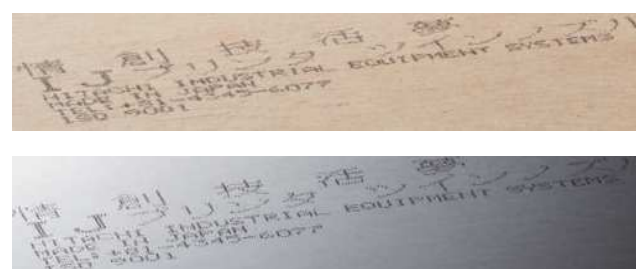 情 創 技 活
IJプリンタ ツインノズル
HITACHI INDUSTRIAL EQUIPMENT SYSTEMS
MADE IN JAPAN
TEL:+81-4345-6077
ISO 9001
情 創 技 活
IJプリンタ ツインノズル
HITACHI INDUSTRIAL EQUIPMENT SYSTEMS
MADE IN JAPAN
TEL:+81-4345-6077
ISO 9001